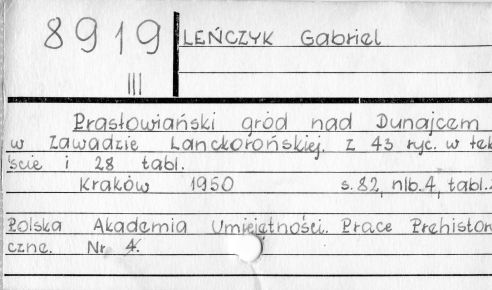 8919 LEŃCZYK Gabriel
III
Prasłowiański gród nad Dunajcem
w Zawadzie Lanckorońskiej. Z 43 ryc. w tek
ście i 28 tabl.
Kraków 1950 s. 82, nlb. 4, tabl. 2
Polska Akademia Umiejętności. Prace Prehistor
czne. Nr 4.